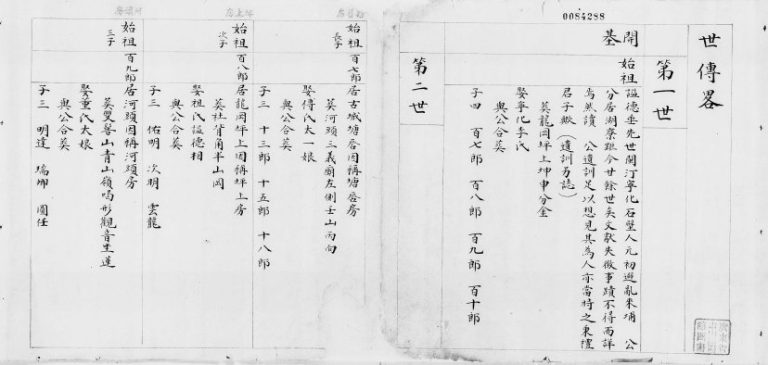 0084288
世傳畧
第一世
開基
始祖諡德垂先世閩汀寧化石壁人元初避亂來埔 公
分居湖寮距今廿餘世矣文獻失徵事蹟不得而詳
焉然讀 公遺訓足以想見其為人亦當時之秉禮
君子歟(遺訓另誌)
葬龍岡坪上坤申分金
娶寧化李氏
與公合葬
子四 百七郎 百八郎 百九郎 百十郎
第二世
始祖長子百七郎居古城塘唇因稱塘唇房
葬河頭三義 左側壬山丙向
娶傅氏大一娘
與公合葬
子三 十三郎 十五郎 十八郎
始祖次子百八郎居龍岡坪上因稱坪上房
葬社背角半山岡
娶祖氏諡德相
與公合葬
子三 佑明 次明 雲龍
始祖三子百九郎居河頭因稱河頭房
葬雙髻山青山嶺喝形觀音坐蓮
娶董氏大娘
與公合葬
子三 明達 瑞